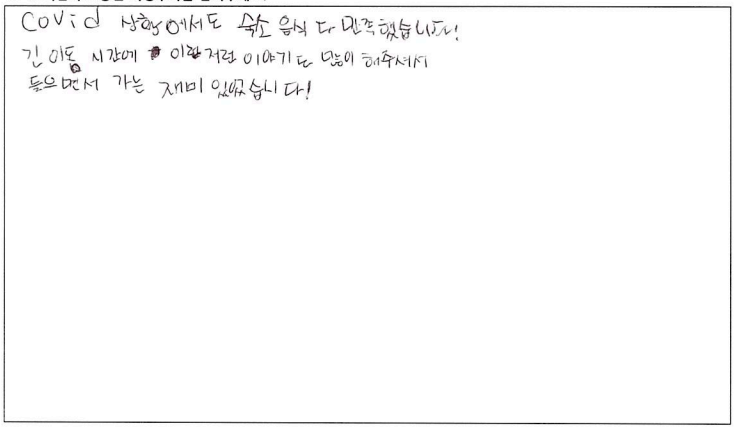 Covid 상황에서도 숙소 음식 다 만족했습니다!
긴 이동 시간에 이런저런 이야기도 많이 해주셔서
들으면서 가는 재미 있었습니다!